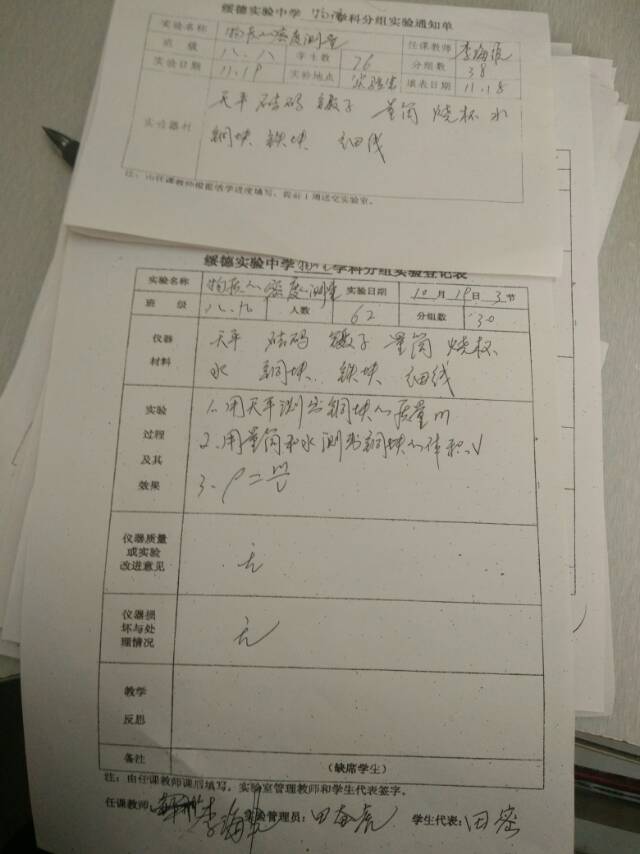 绥德实验中学 物理 学科分组实验通知单
实验名称 物质的密度测量 任课教师
班级 八.八 学生数 76 分组数 38
实验日期 11.19 实验地点 实验室 填表日期 11.18
实验器材 天平 砝码 镊子 量筒 烧杯 水
铜块 铁块 细线
注:由任课教师根据活学进度填写,提前1周送交实验室。
绥德实验中学 物理 学科分组实验登记表
实验名称 物质的密度测量 实验日期 10月19日3节
班级 八.九 人数 62 分组数 30
仪器材料 天平 砝码 镊子 量筒 烧杯
水 铜块 铁块 细线
实验过程及其效果 1.用天平测出铜块的质量m
2.用量筒和水测出铜块的体积V
3.ρ=m/V
仪器质量或实验改进意见 无
仪器损坏与处理情况 无
教学反思
备注 (缺席学生)
注:由任课教师课后填写,实验室管理教师和学生代表签字。
任课教师: 实验管理员: 学生代表: